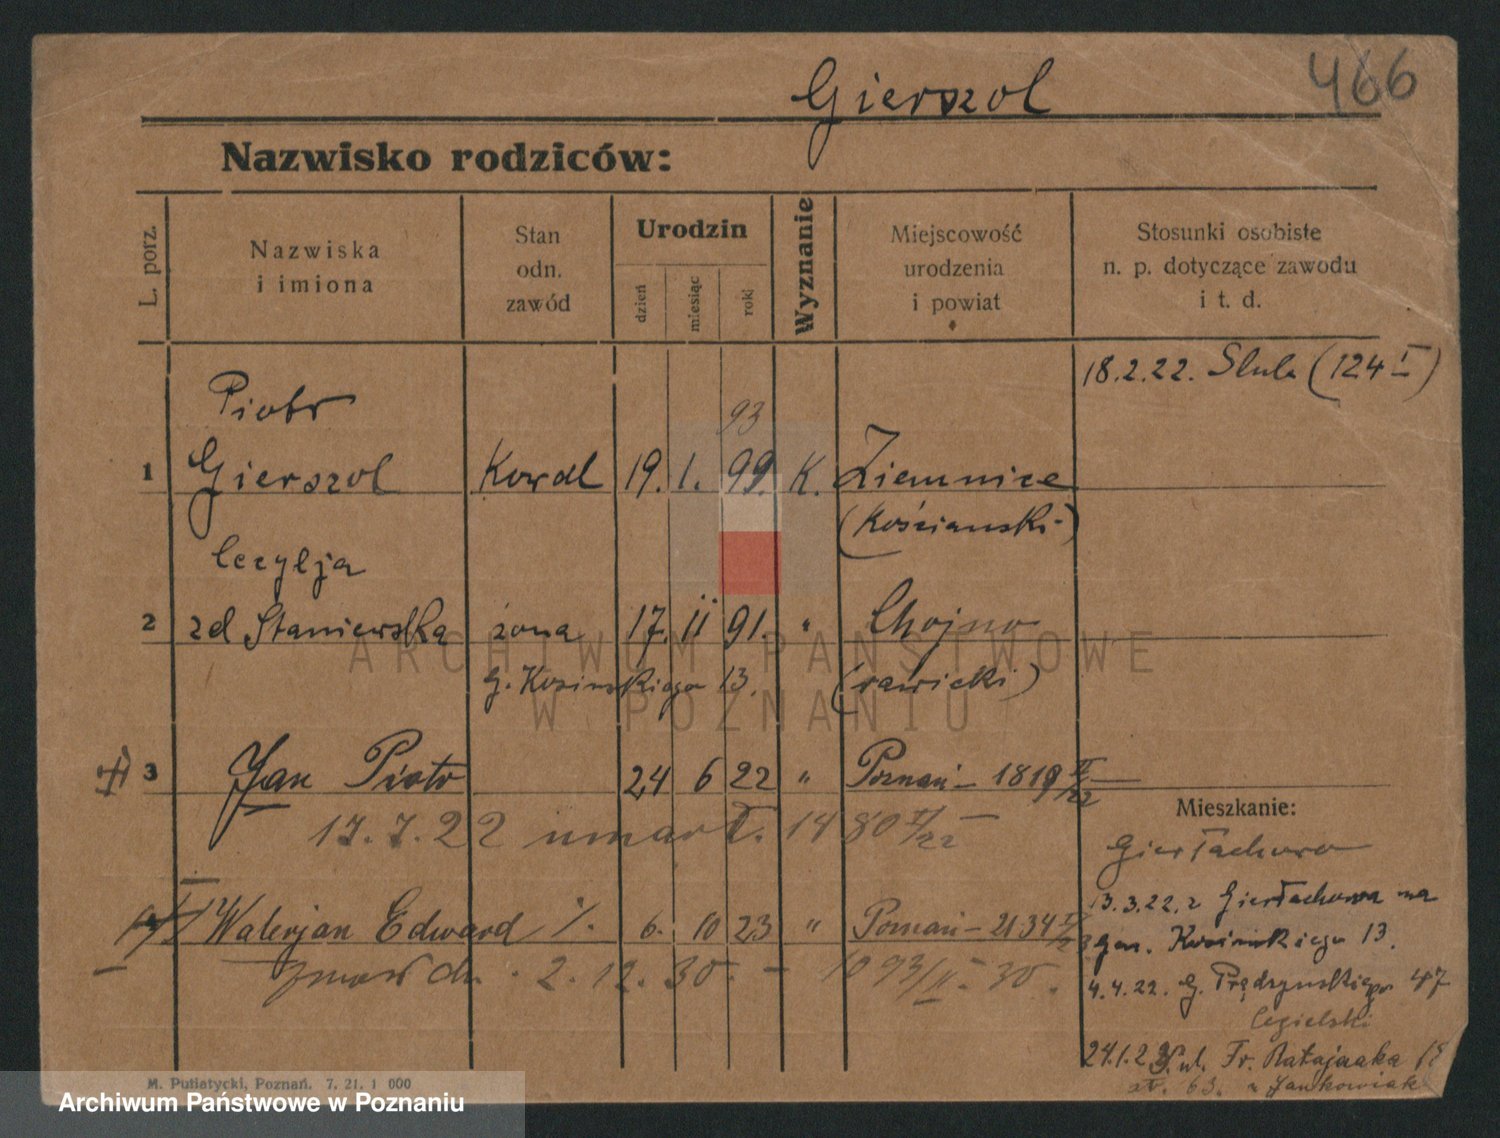 Gierszol
466
Nazwisko rodziców:
L. porz.
Nazwiska i imiona
Stan odn. zawód
Urodzin
dzień
miesiąc
rok
Wyznanie
Miejscowość urodzenia i powiat
Stosunki osobiste n. p. dotyczące zawodu i t. d.
18.2.22. Slub (124 I)
Piotr
93
1 Gierszol Kowal 19. 1. 99. K. Ziemnice
(Kościański)
Cecylja
2 zd Staniewska żona 17. 11 91. " Chojno
G. Kosinskiego 13. (rawicki)
3 Jan Piotr 24 6 22 " Poznań - 1819 II/22
17.7.22 umarł. 1480 I/22
Mieszkanie:
Gierłachowo
Walerjan Edward %. 6. 10 23 " Poznań - 2134 I/23
zmarł dn. 2.12.30. - 1093/II - 30.
13.3.22. z Gierłachowa na
gen. Kosinskiego 13.
4.4.22. G. Prądzynskiego 47
Cegielski
24.1.23. ul. Fr. Ratajczaka 18
63. Jankowiak
M. Putiatycki, Poznań. 7. 21. 1 000
ARCHIWUM PAŃSTWOWE
W POZNANIU
Archiwum Państwowe w Poznaniu